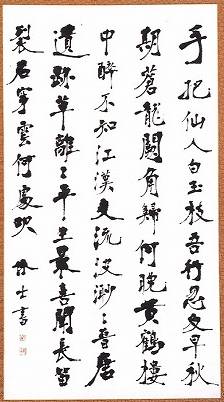 手把仙人白玉枝吾行忽及早秋
期蒼龍闕角歸何晚黃鶴樓
中醉不知江漢交流波渺〻晉唐
遺跡草離〻平生最喜聞長笛
裂石穿雲何處吹 士書